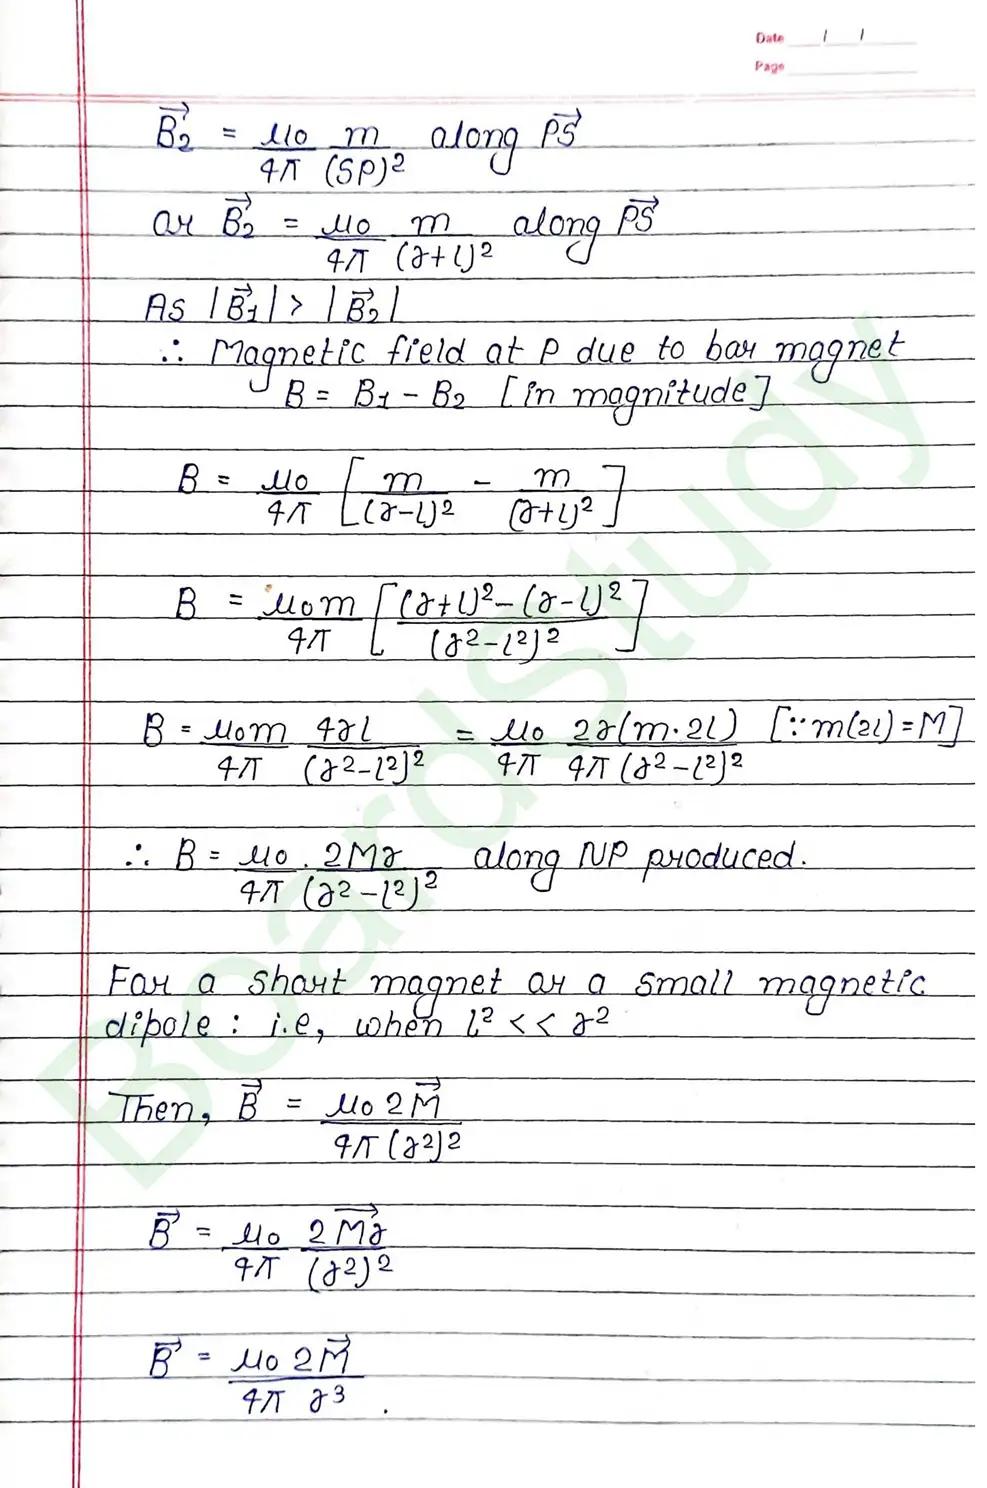 Date / /
Page
B⃗₂ = μ₀/4π m/(SP)² along PS⃗
or B⃗₂ = μ₀/4π m/(r+l)² along PS⃗
As |B⃗₁| > |B⃗₂|
∴ Magnetic field at P due to bar magnet
B = B₁ - B₂ [in magnitude]
B = μ₀/4π [m/(r-l)² - m/(r+l)²]
B = μ₀m/4π [(r+l)² - (r-l)²/(r²-l²)²]
B = μ₀m/4π 4rl/(r²-l²)² = μ₀/4π 2r(m·2l)/4π(r²-l²)² [∵ m(2l) = M]
∴ B = μ₀/4π · 2Mr/(r²-l²)² along NP produced.
For a short magnet or a small magnetic
dipole : i.e, when l² << r²
Then, B⃗ = μ₀ 2M⃗/4π (r²)²
B⃗ = μ₀/4π 2M⃗r/(r²)²
B⃗ = μ₀ 2M⃗/4π r³ .
BoardStudy